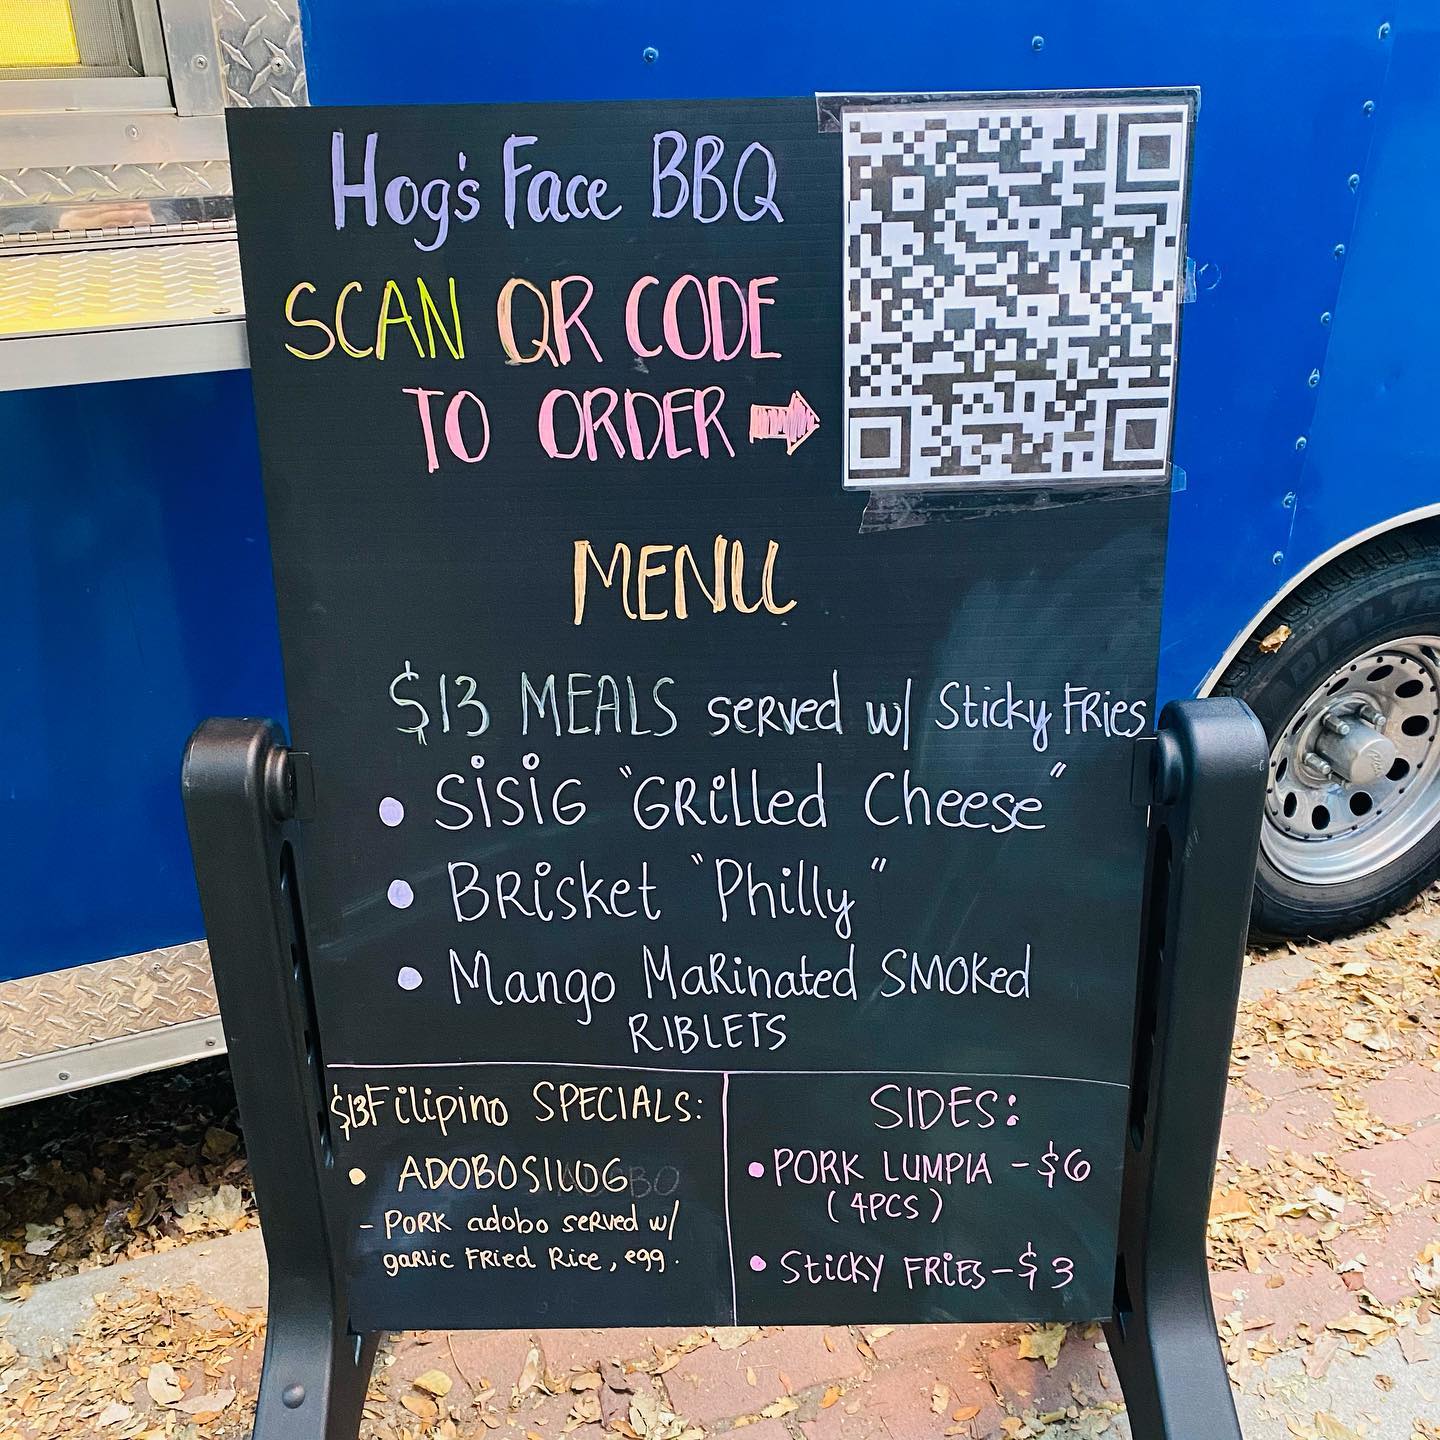 Hog's Face BBQ
SCAN QR CODE
TO ORDER
MENU
$13 MEALS served w/ Sticky Fries
• SISIG "Grilled Cheese"
• Brisket "Philly"
• Mango Marinated Smoked
RIBLETS
$13 Filipino SPECIALS:
• ADOBOSILOG
- Pork adobo served w/
garlic Fried Rice, egg.
SIDES:
• PORK LUMPIA - $6
(4PCS)
• Sticky FRIES - $3